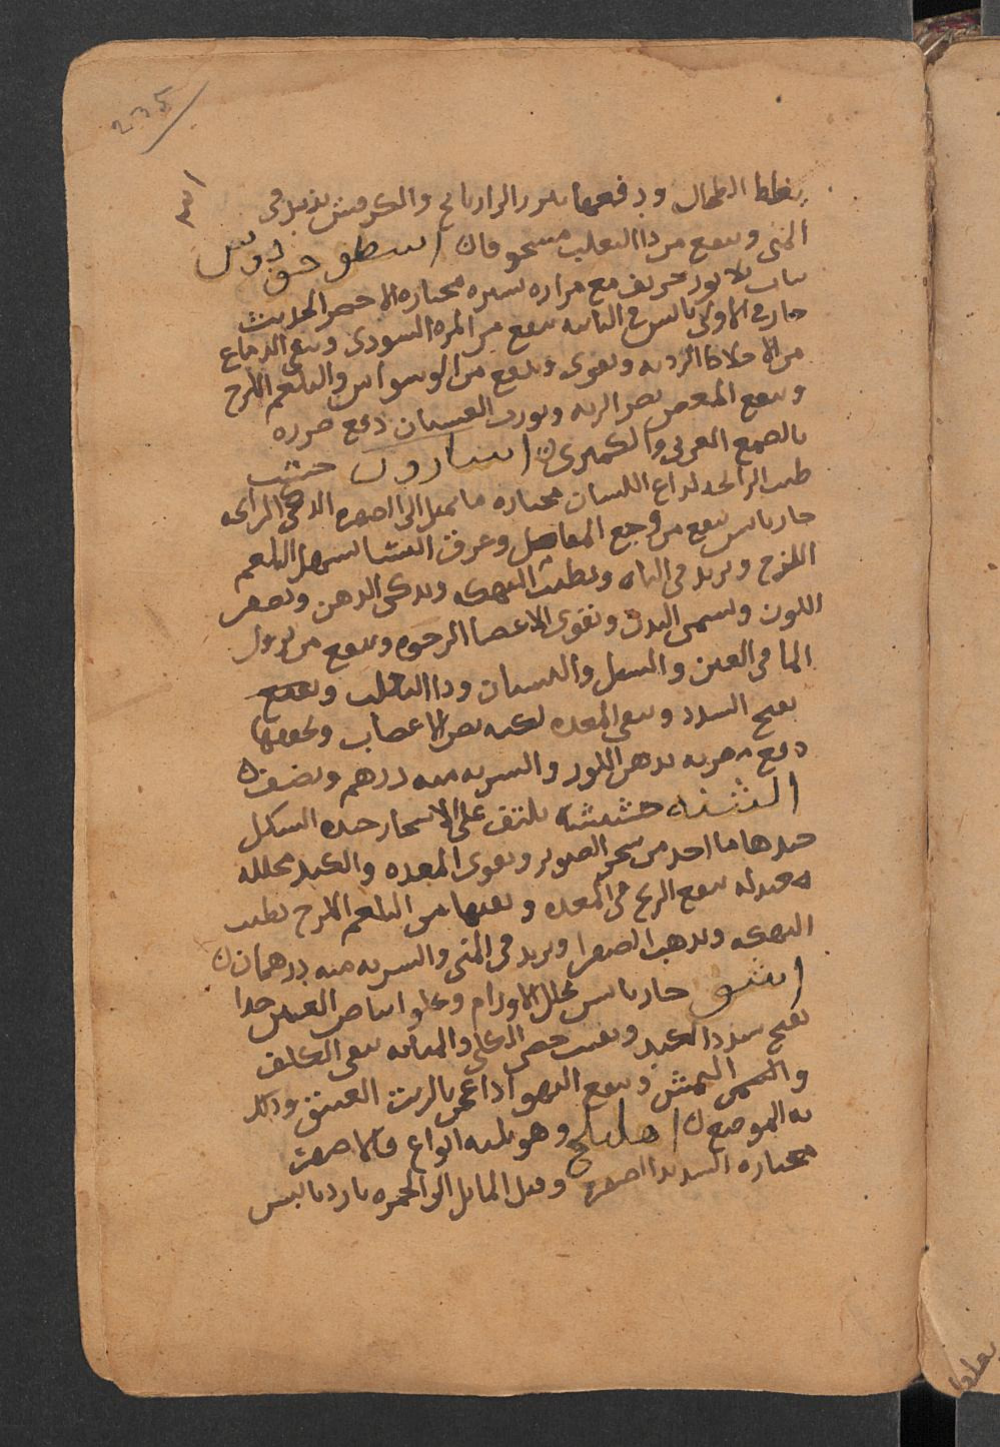 235
يغلط الطحال ودفعها ببزر الرازيانج والكرفس يزيد فى
المنى وينفع من دا الثعلب مسحوقا ن اسطوخودوس
نبات بلا نور حريف مع مراره يسيره مختاره الاخضر الحديث
حار فى الاولى يابس فى الثانيه ينفع من المره السودى وينقى الدماغ
من الاخلاط الرديه ويقوى وينفع من الوسواس والبلغم اللزج
وينفع المغص يضر الريه ويورث الغثيان دفع ضرره
بالصمغ العربى والكثيرى ن اسارون خشب
طيب الرايحه لداع اللسان مختاره ما يميل الى الصفره الذكى الرايحه
حار يابس ينفع من وجع المفاصل وعرق النسا يسهل البلغم
اللزج ويزيد فى الباه ويطيب النهكه ويذكى الذهن ويصفر
اللون ويسمن البدن ويقوى الاعضا الرخوه وينفع من نزول
الما فى العين والسبل والنسيان ودا الثعلب
يفتح السدد وينقى المعده لكنه يضر الاعصاب ويجففها
دفع مضرته بدهن اللوز والشربه منه درهم ونصف ن
اشنه حشيشة تلتف على الاشجار حده الشكل
جيدها ما اخذ من شجر الصنوبر ويقوى المعده والكبد محلله
معتدله ينفع الريح فى المعده وينقيها من البلغم اللزج يطيب
النهكه ويذهب الصفرا ويزيد فى المنى والشربه منه درهمان ن
اشق حار يابس يحلل الاورام ويجلو بياض العين جدا
يفتح سدد الكبد ويفتت حصى الكلى والمثانه ينقى الكلف
والنمش وينفع البهق اذا عجن بالزيت العتيق ودلك
به الموضع ن اهليلج وهو ثلثه انواع فالاصفر
مختاره الشديد الصفره وقيل المايل الى الحمره بارد يابس